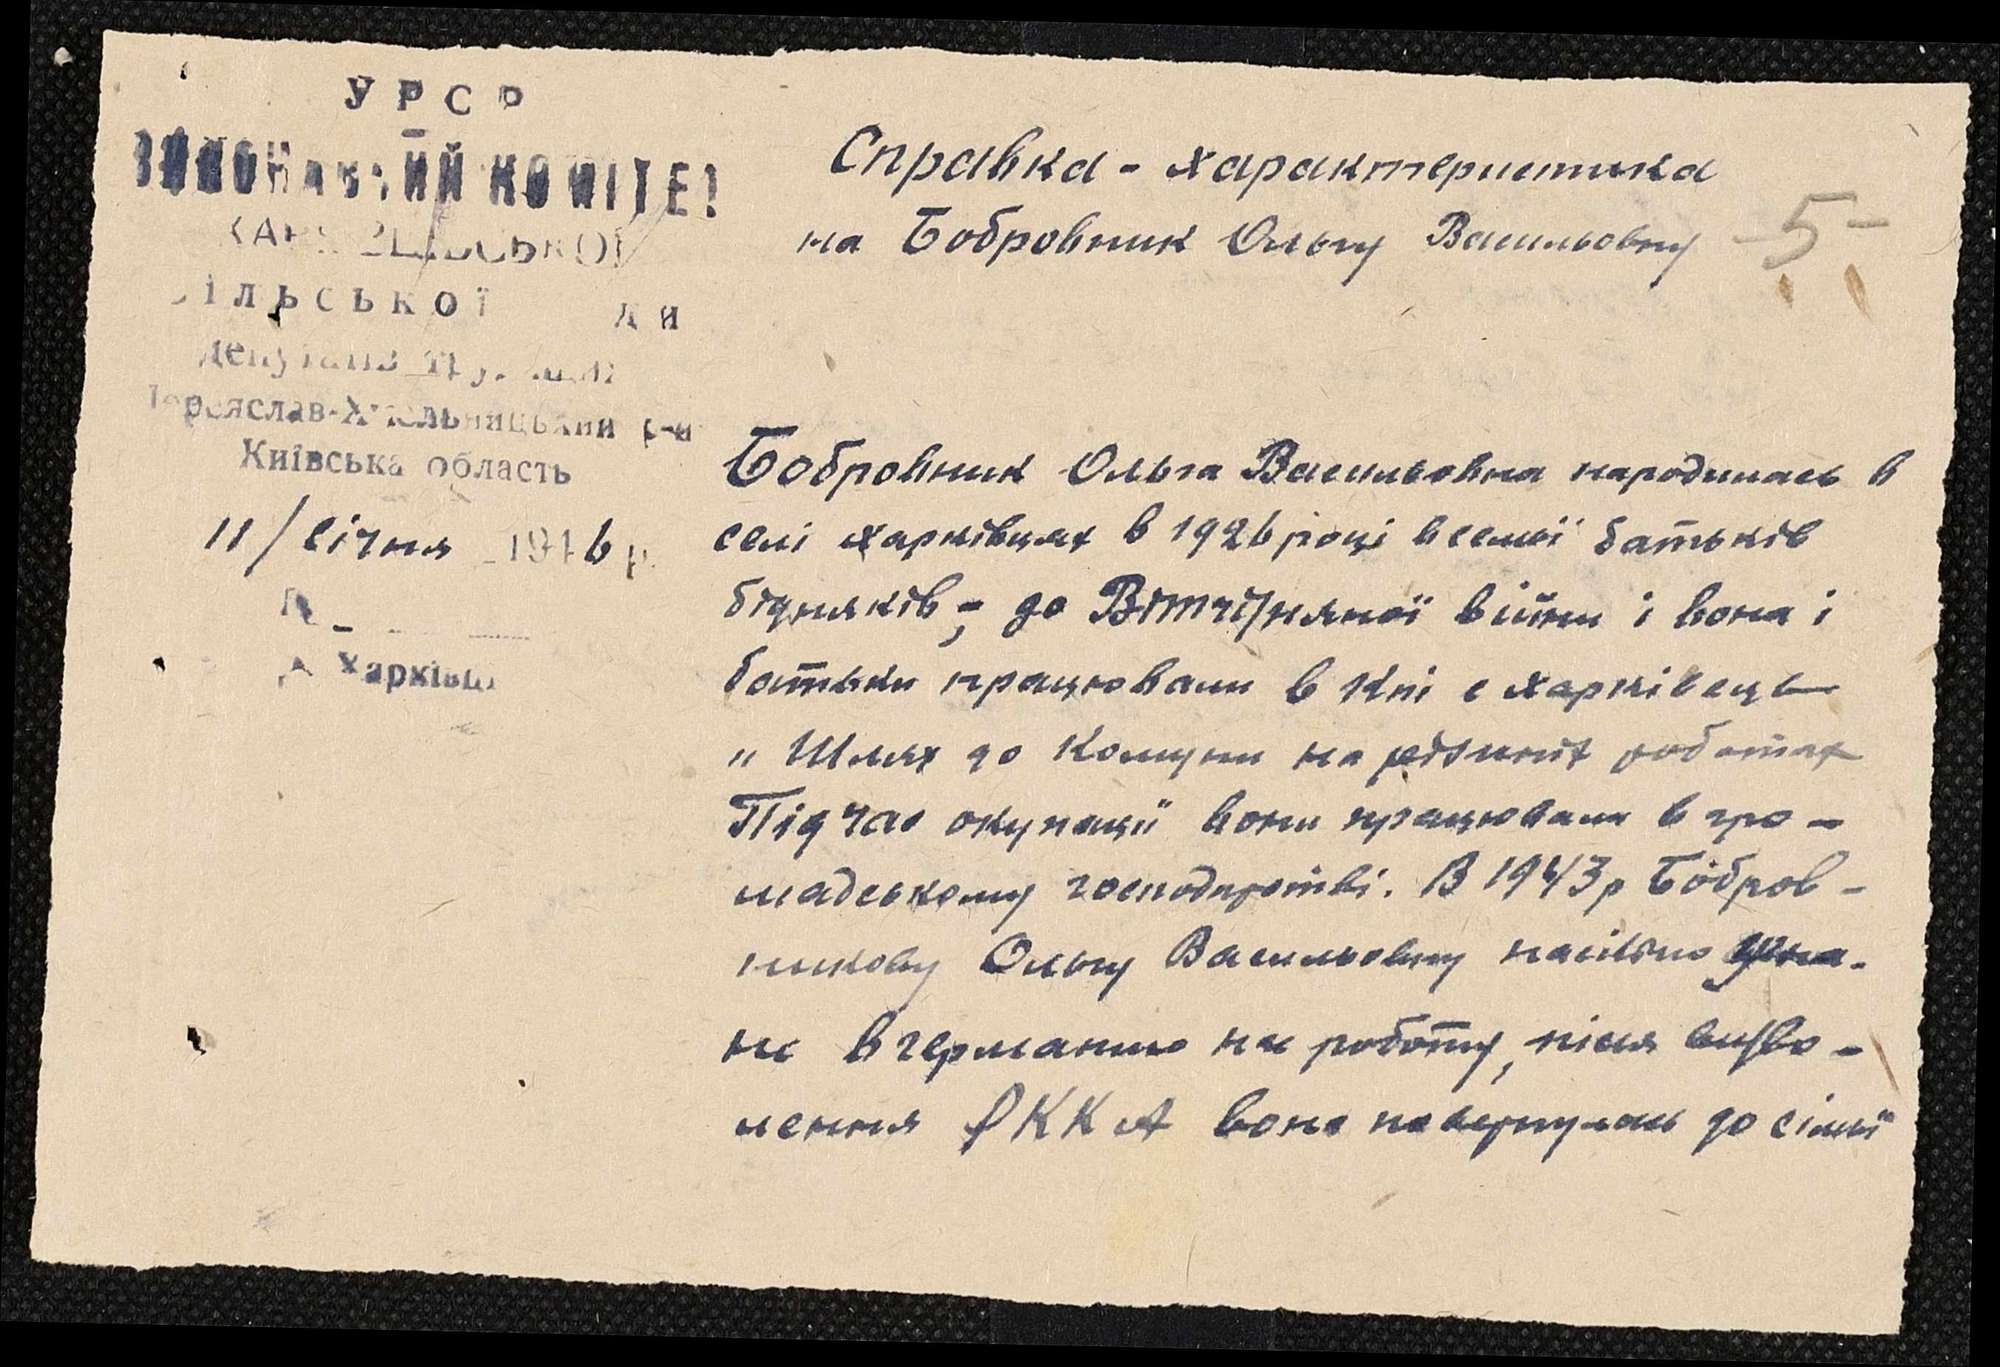 УРСР
ВИКОНАВЧИЙ КОМІТЕТ
сільської ради
депутатів трудящих
Переяслав-Хмельницький р-н
Київська область
11/січня 1946 р.
Харківці
Справка - характеристика
на Бобровник Ольгу Васильовну
-5-
Бобровник Ольга Васильовна народилась в
селі Харківцях в 1926 році в семьї батьків
бідняків; до Вітчізняної війни і вона і
батьки працювали в кпі с Харківець
„Шлях до Комуни на різних роботах
Під час окупації вони працювали в гро-
мадському господарстві. В 1943р Бобров-
никову Ольгу Васильовну насільно угна-
не в германию на роботу, після визво-
лення РККА вона повернулась до сімьї